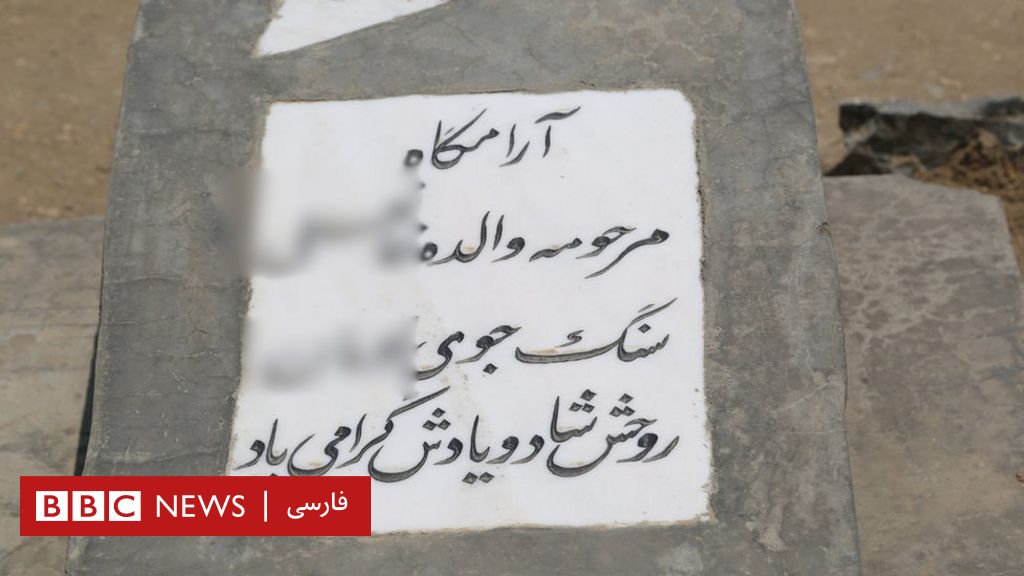 آرامگاه
مرحومه والده
سنگ جوی
روحش شاد و یادش گرامی باد
BBC NEWS | فارسی